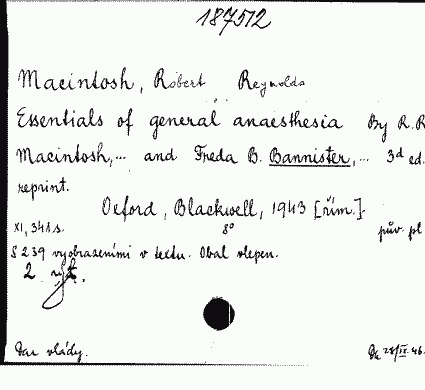 187512
Macintosh, Robert Reynolds
Essentials of general anaesthesia By R.R.
Macintosh,... and Freda B. Bannister,... 3d ed.
reprint.
Oxford, Blackwell, 1943 [řím.].
XI, 341 s. 8° pův. pl
S 239 vyobrazeními v textu. Obal vlepen.
2
Dar vlády.